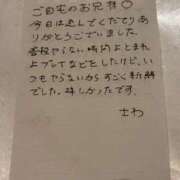 ご自宅のお兄様〇
今日は返してくださりあ
りがとうございました。
普段やらない時間よとまれ
よプレイなどをしたけど、い
つもやらないからすごく新鮮
でした。味しかったです。
さわ